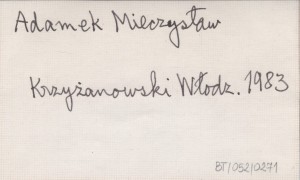 Adamek Mieczysław
Krzyżanowski Włodz. 1983
BT/052/0271